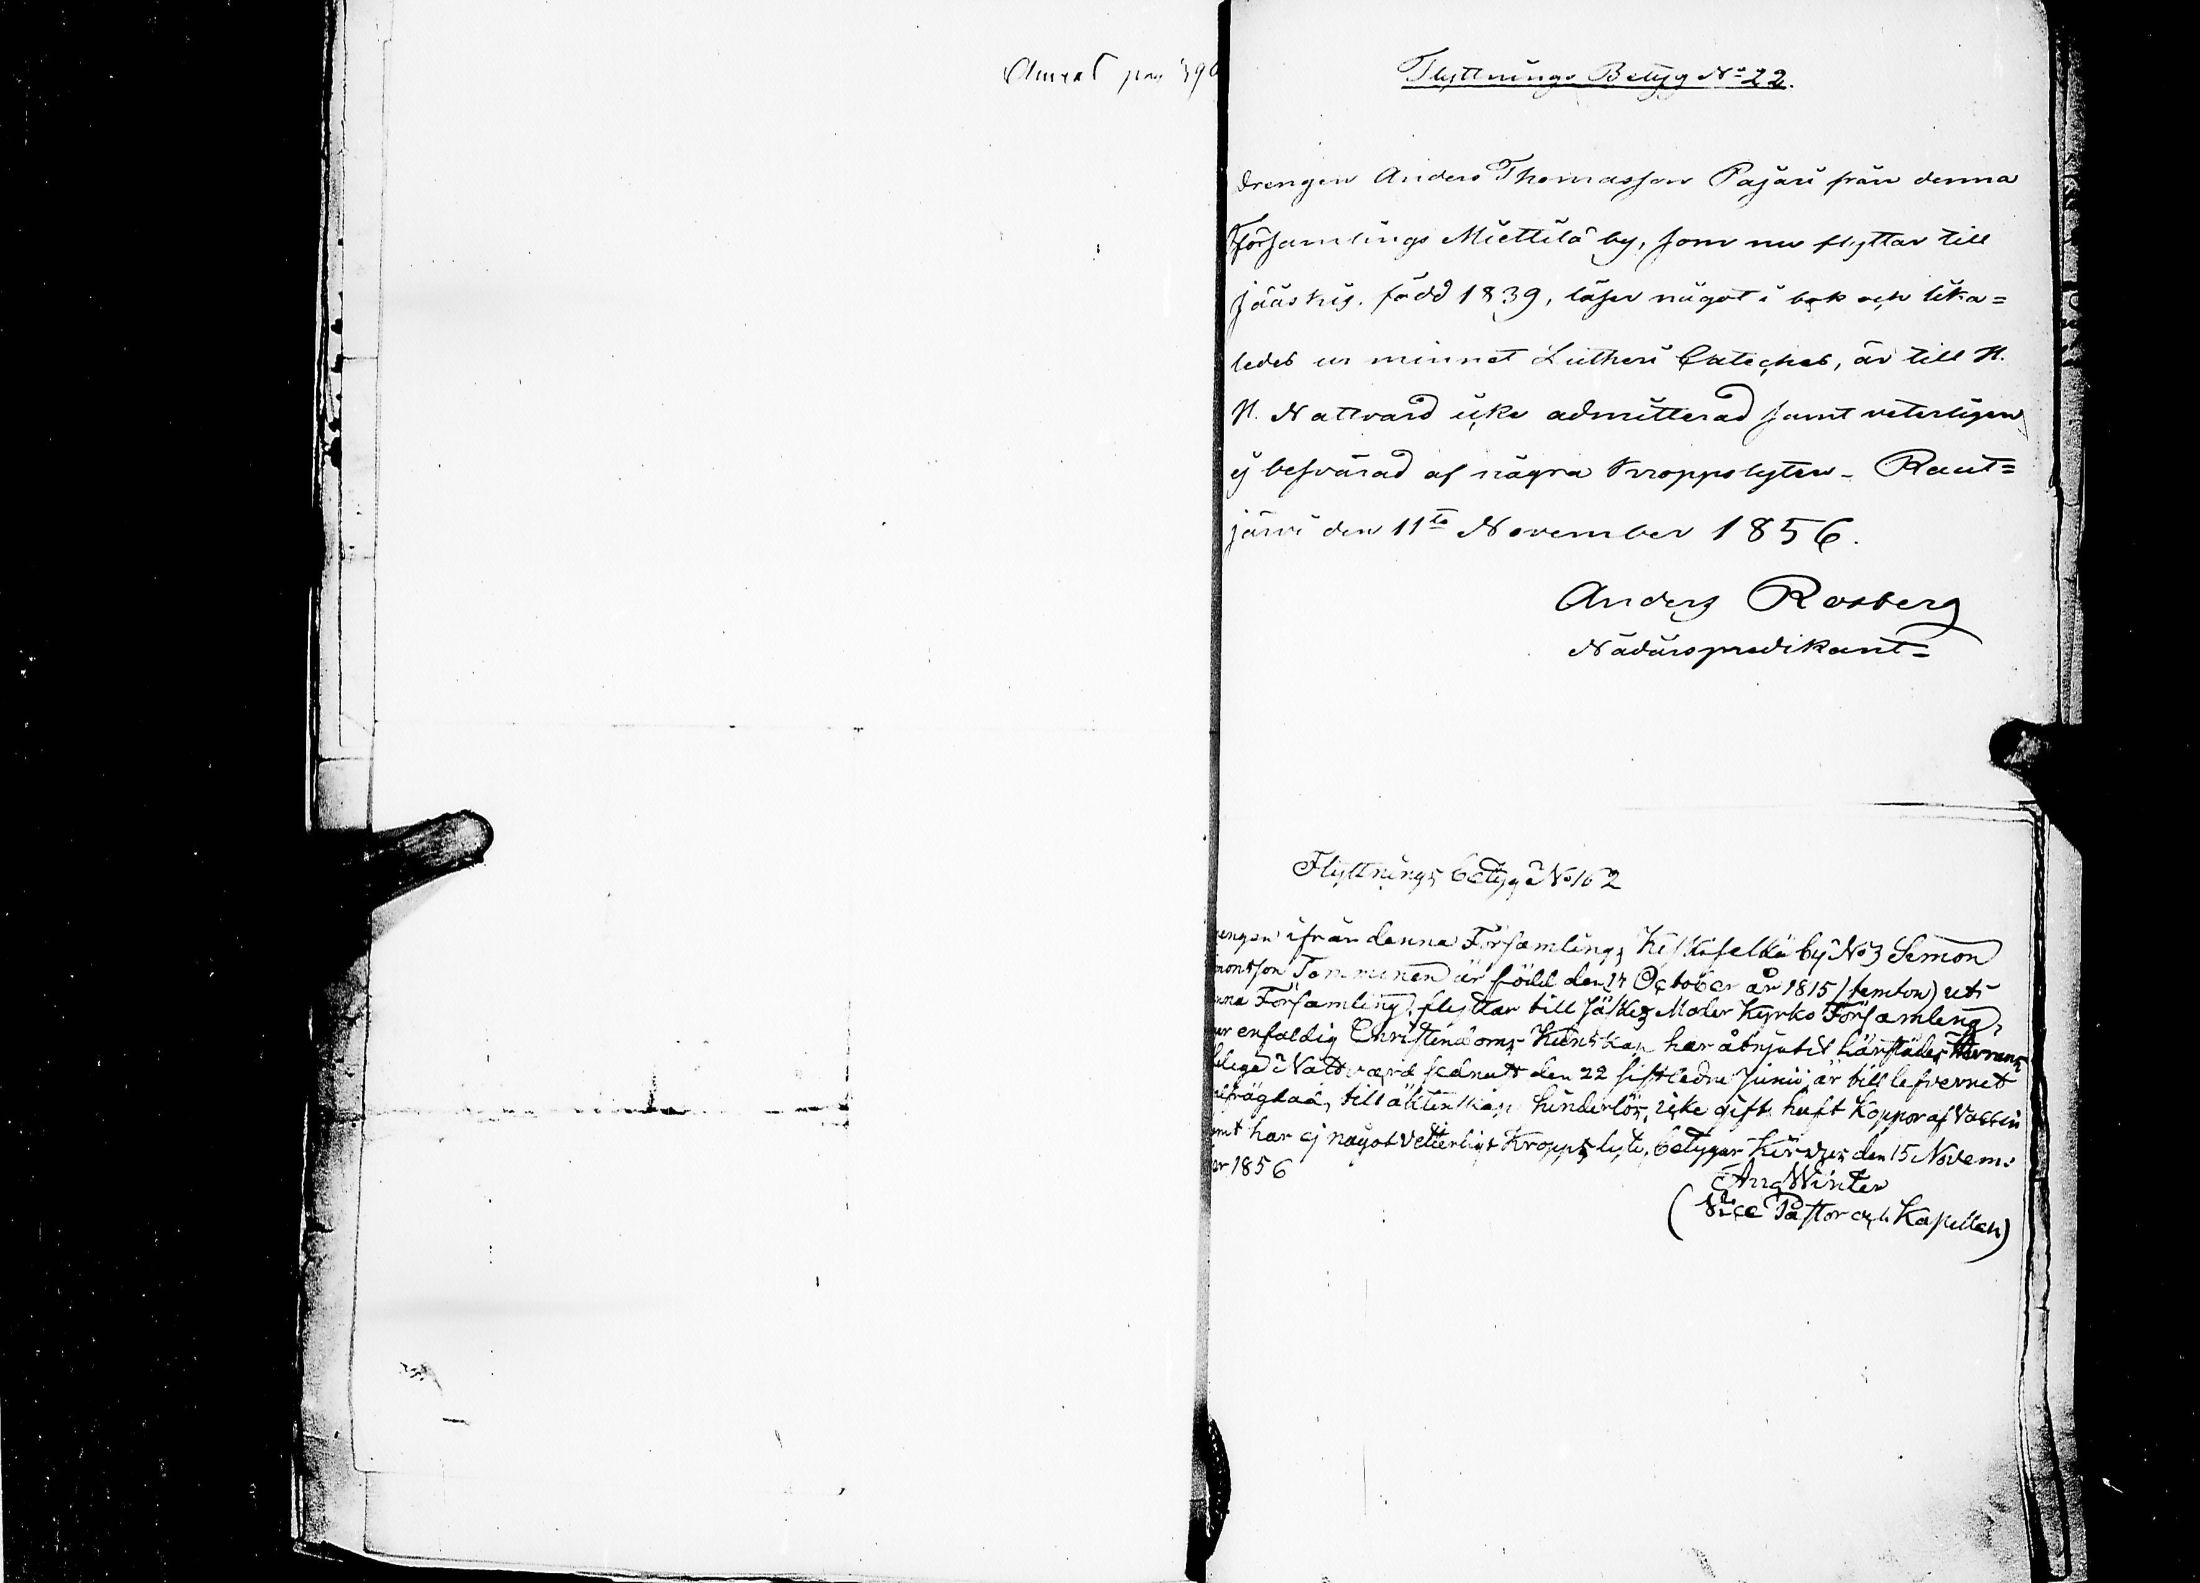 pag 390
Flyttnings Betyg No 22.
Drengen Anders Thomasson Pajari från denna
Församlings Miettilä by, som nu flyttar till
Jääskis. född 1839, läser något i bok och lika=
ledes ur minnet Lutheri Cateches, är till H.
H. Nattvard icke admitterad samt veterligen
ej besvärad af några kroppslyten - Raut=
järvi den 11te November 1856.
Anders Rosberg
Nådårspredikant=
Flyttnings betyg No 162
rengen ifrån denna Församlings by No 3 Simon
montson Tomminen är född den 17 October år 1815 (femton) uti
nna Församling, flyttar till Jäskes Moder Kyrko Församling,
ar enfaldig Christendoms Kunskap har åtnjutit härstädes Herrans
helige Nattvard sednast den 22 sistledne Junii är till lefvernet
oförsträckt, till äktenskap hinderlös, icke gift haft Koppor af Vaccin
amt har ej något vetterligt Kropps lyte, betygar Kirvus den 15 Novem-
er 1856
Aug Winter
(Vice Pastor och Kapellan)